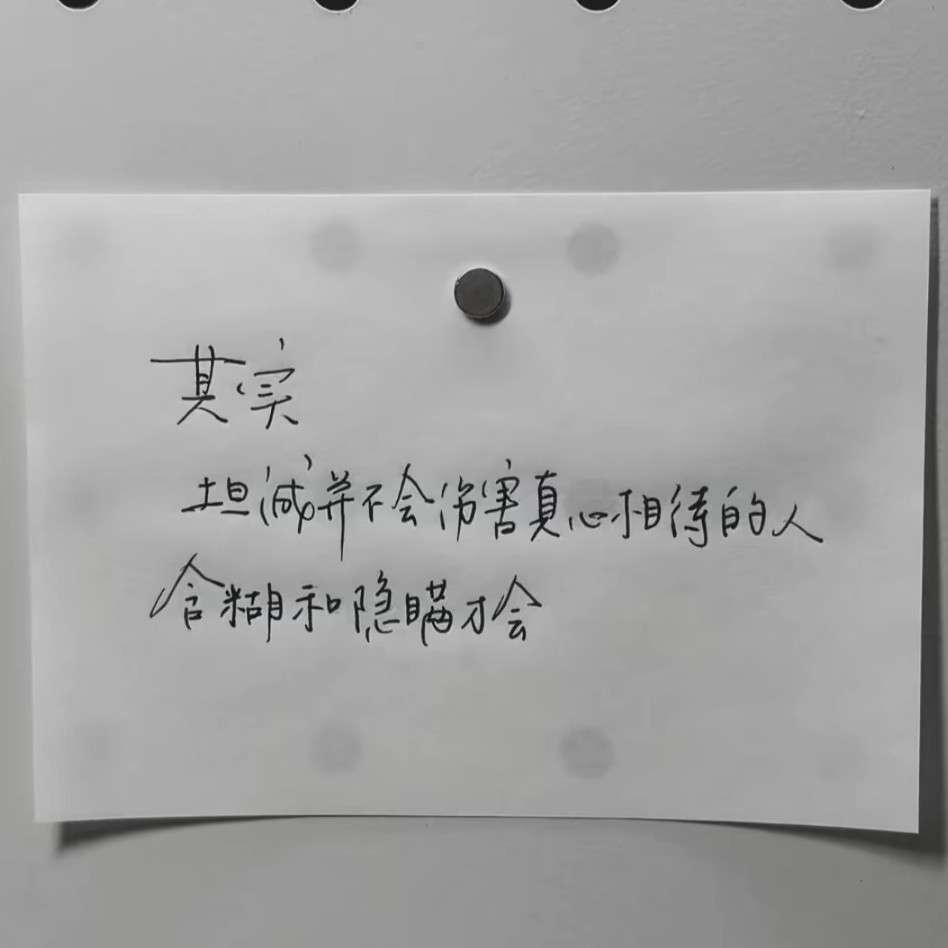 其实
坦诚并不会伤害真心相待的人
含糊和隐瞒才会